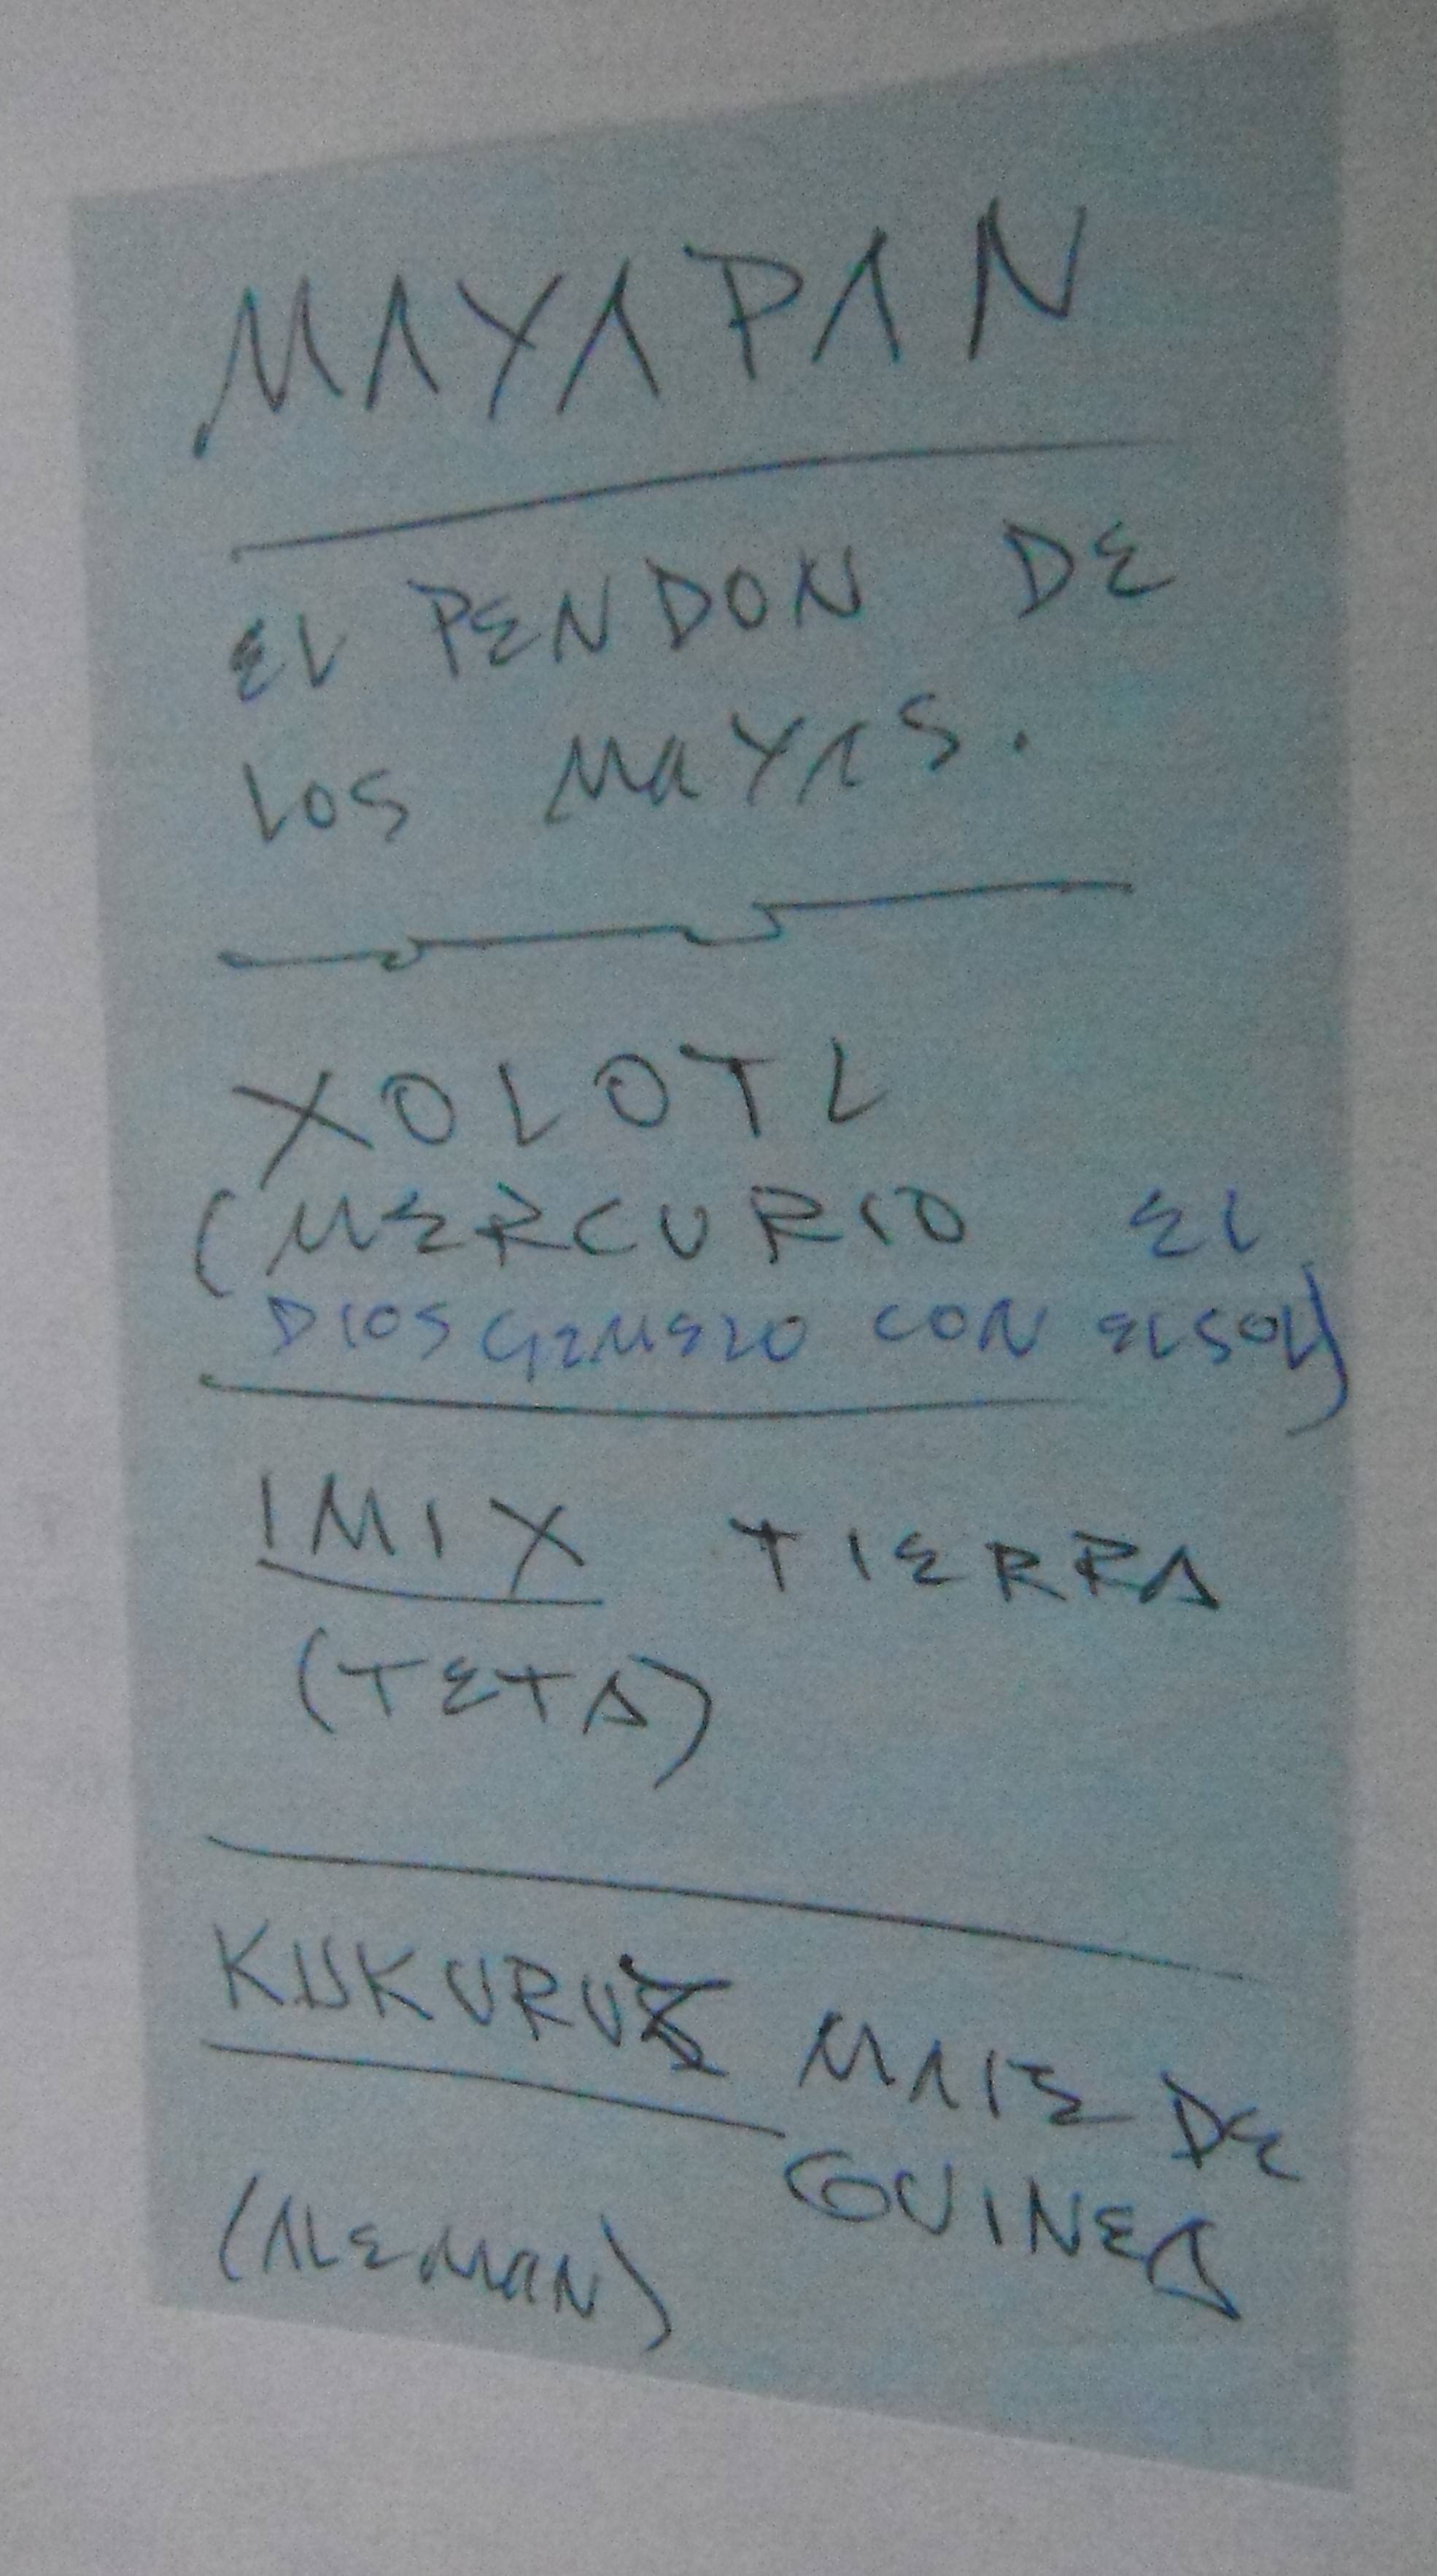 MAYAPAN
EL PENDON DE
LOS MAYAS.
XOLOTL
(MERCURIO EL
DIOS GEMELO CON EL SOL)
IMIX TIERRA
(TETA)
KUKURUZ MAIZ DE
GUINEA
(ALEMAN)